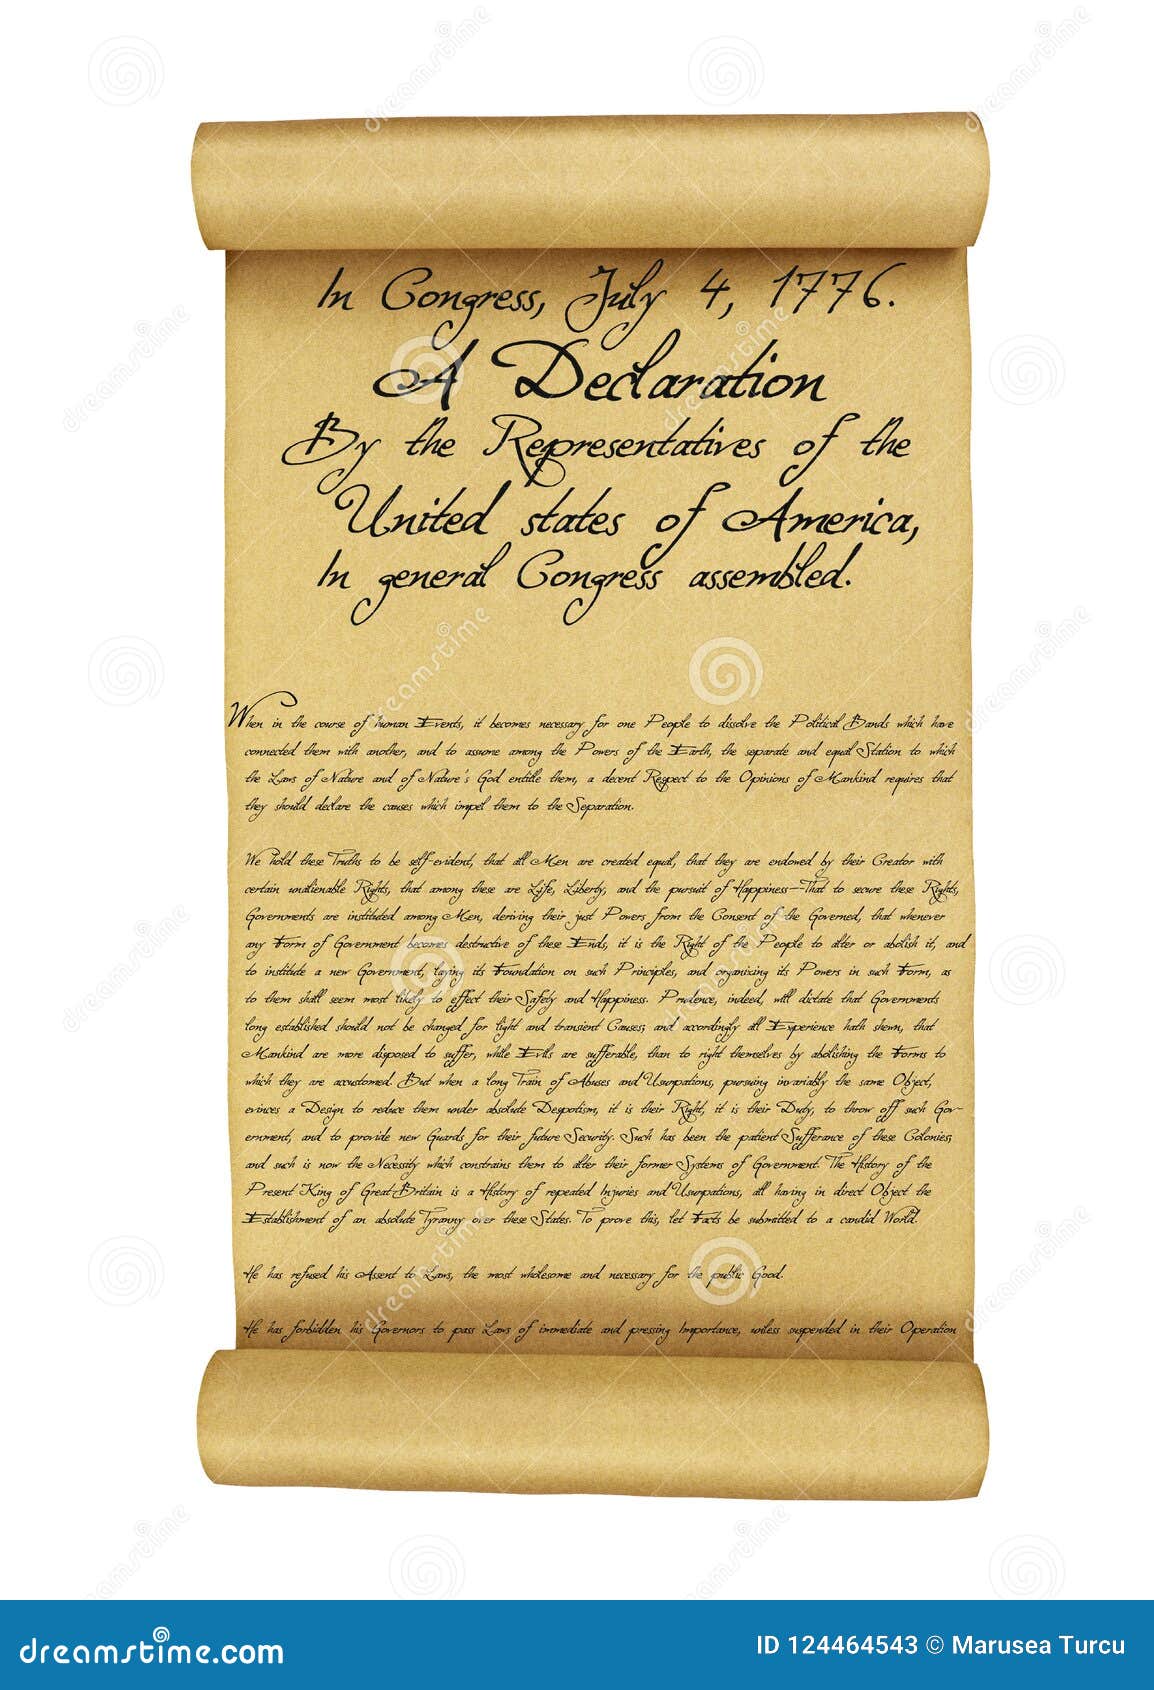 In Congress, July 4, 1776.
A Declaration
By the Representatives of the
United states of America,
In general Congress assembled.
When in the course of human Events, it becomes necessary for one People to dissolve the Political Bands which have
connected them with another, and to assume among the Powers of the Earth, the separate and equal Station to which
the Laws of Nature and of Nature's God entitle them, a decent Respect to the Opinions of Mankind requires that
they should declare the causes which impel them to the Separation.
We hold these Truths to be self-evident, that all Men are created equal, that they are endowed by their Creator with
certain unalienable Rights, that among these are Life, Liberty, and the pursuit of Happiness—That to secure these Rights,
Governments are instituted among Men, deriving their just Powers from the Consent of the Governed, that whenever
any Form of Government becomes destructive of these Ends, it is the Right of the People to alter or abolish it, and
to institute a new Government, laying its Foundation on such Principles, and organizing its Powers in such Form, as
to them shall seem most likely to effect their Safety and Happiness. Prudence, indeed, will dictate that Governments
long established should not be changed for light and transient Causes; and accordingly all Experience hath shewn, that
Mankind are more disposed to suffer, while Evils are sufferable, than to right themselves by abolishing the Forms to
which they are accustomed. But when a long Train of Abuses and Usurpations, pursuing invariably the same Object,
evinces a Design to reduce them under absolute Despotism, it is their Right, it is their Duty, to throw off such Gov-
ernment, and to provide new Guards for their future Security. Such has been the patient Sufferance of these Colonies;
and such is now the Necessity which constrains them to alter their former Systems of Government. The History of the
Present King of Great-Britain is a History of repeated Injuries and Usurpations, all having in direct Object the
Establishment of an absolute Tyranny over these States. To prove this, let Facts be submitted to a candid World.
He has refused his Assent to Laws, the most wholesome and necessary for the public Good.
He has forbidden his Governors to pass Laws of immediate and pressing Importance, unless suspended in their Operation
dreamstime.com
ID 124464543 © Marusea Turcu